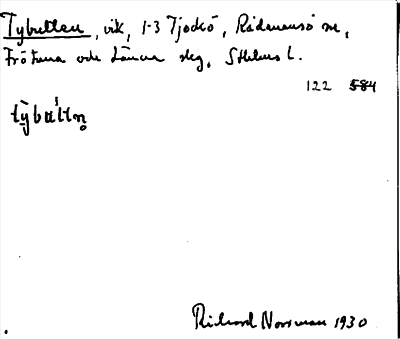 Tybutten, vik, 1-3 Tjockö, Rådmansö sn,
Frötuna och Länna skg, Sthlms l.
122 584
tỳbút̄tn̥
Richard Norrman 1930